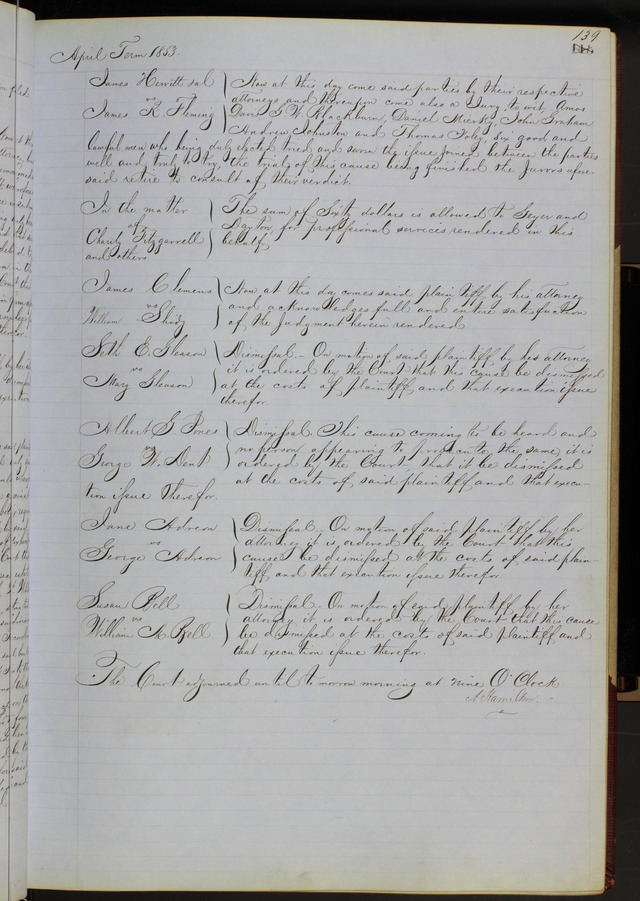 139
April Term 1853.
James Hewitt et al } Now at this day come said parties by their respective
vs
attorneys and thereupon come also a Jury to wit, Amos
James R. Fleming } Davis G W Blackburn, Daniel John Graham
Andrew Johnston and Thomas Foly, six good and
lawful men who being duly elected tried and sworn the issue joined between the parties
well and truly to try, the trial of this cause being finished the Jurors afore
said retire to consult of their verdict.
In the matter } The sum of Sixty dollars is allowed to Geyer and
of
Charity Fitzgerrell } Dayton for professional services rendered in this
and others } behalf
James Clemens } Now at this day comes said plaintiff by his attorney
vs
and acknowledges full and entire satisfaction
William } of the Judgment herein rendered
Seth E. Gleason } Dismissal - On motion of said plaintiff by his attorney
vs
it is ordered by the Court that this cause be dismissed
Mary Gleason } at the costs of plaintiff and that execution issue
therefor
Albert G Jones } Dismissal This cause coming to be heard and
vs
no person appearing to prosecute the same, it is
George W. Dent } ordered by the Court that it be dismissed
at the costs of said plaintiff and that execu-
tion issue therefor.
Jane Adreon } Dismissal. On motion of said plaintiff by her
vs
attorney it is ordered by the Court that this
George Adreon } cause be dismissed at the costs of said plain-
tiff and that execution issue therefor
Susan Bell } Dismissal. On motion of said plaintiff by her
vs
attorney it is ordered by the Court that this cause
William A Bell } be dismissed at the costs of said plaintiff and
that execution issue therefor.
The Court adjourned until tomorrow morning at nine O'Clock
A Hamilton